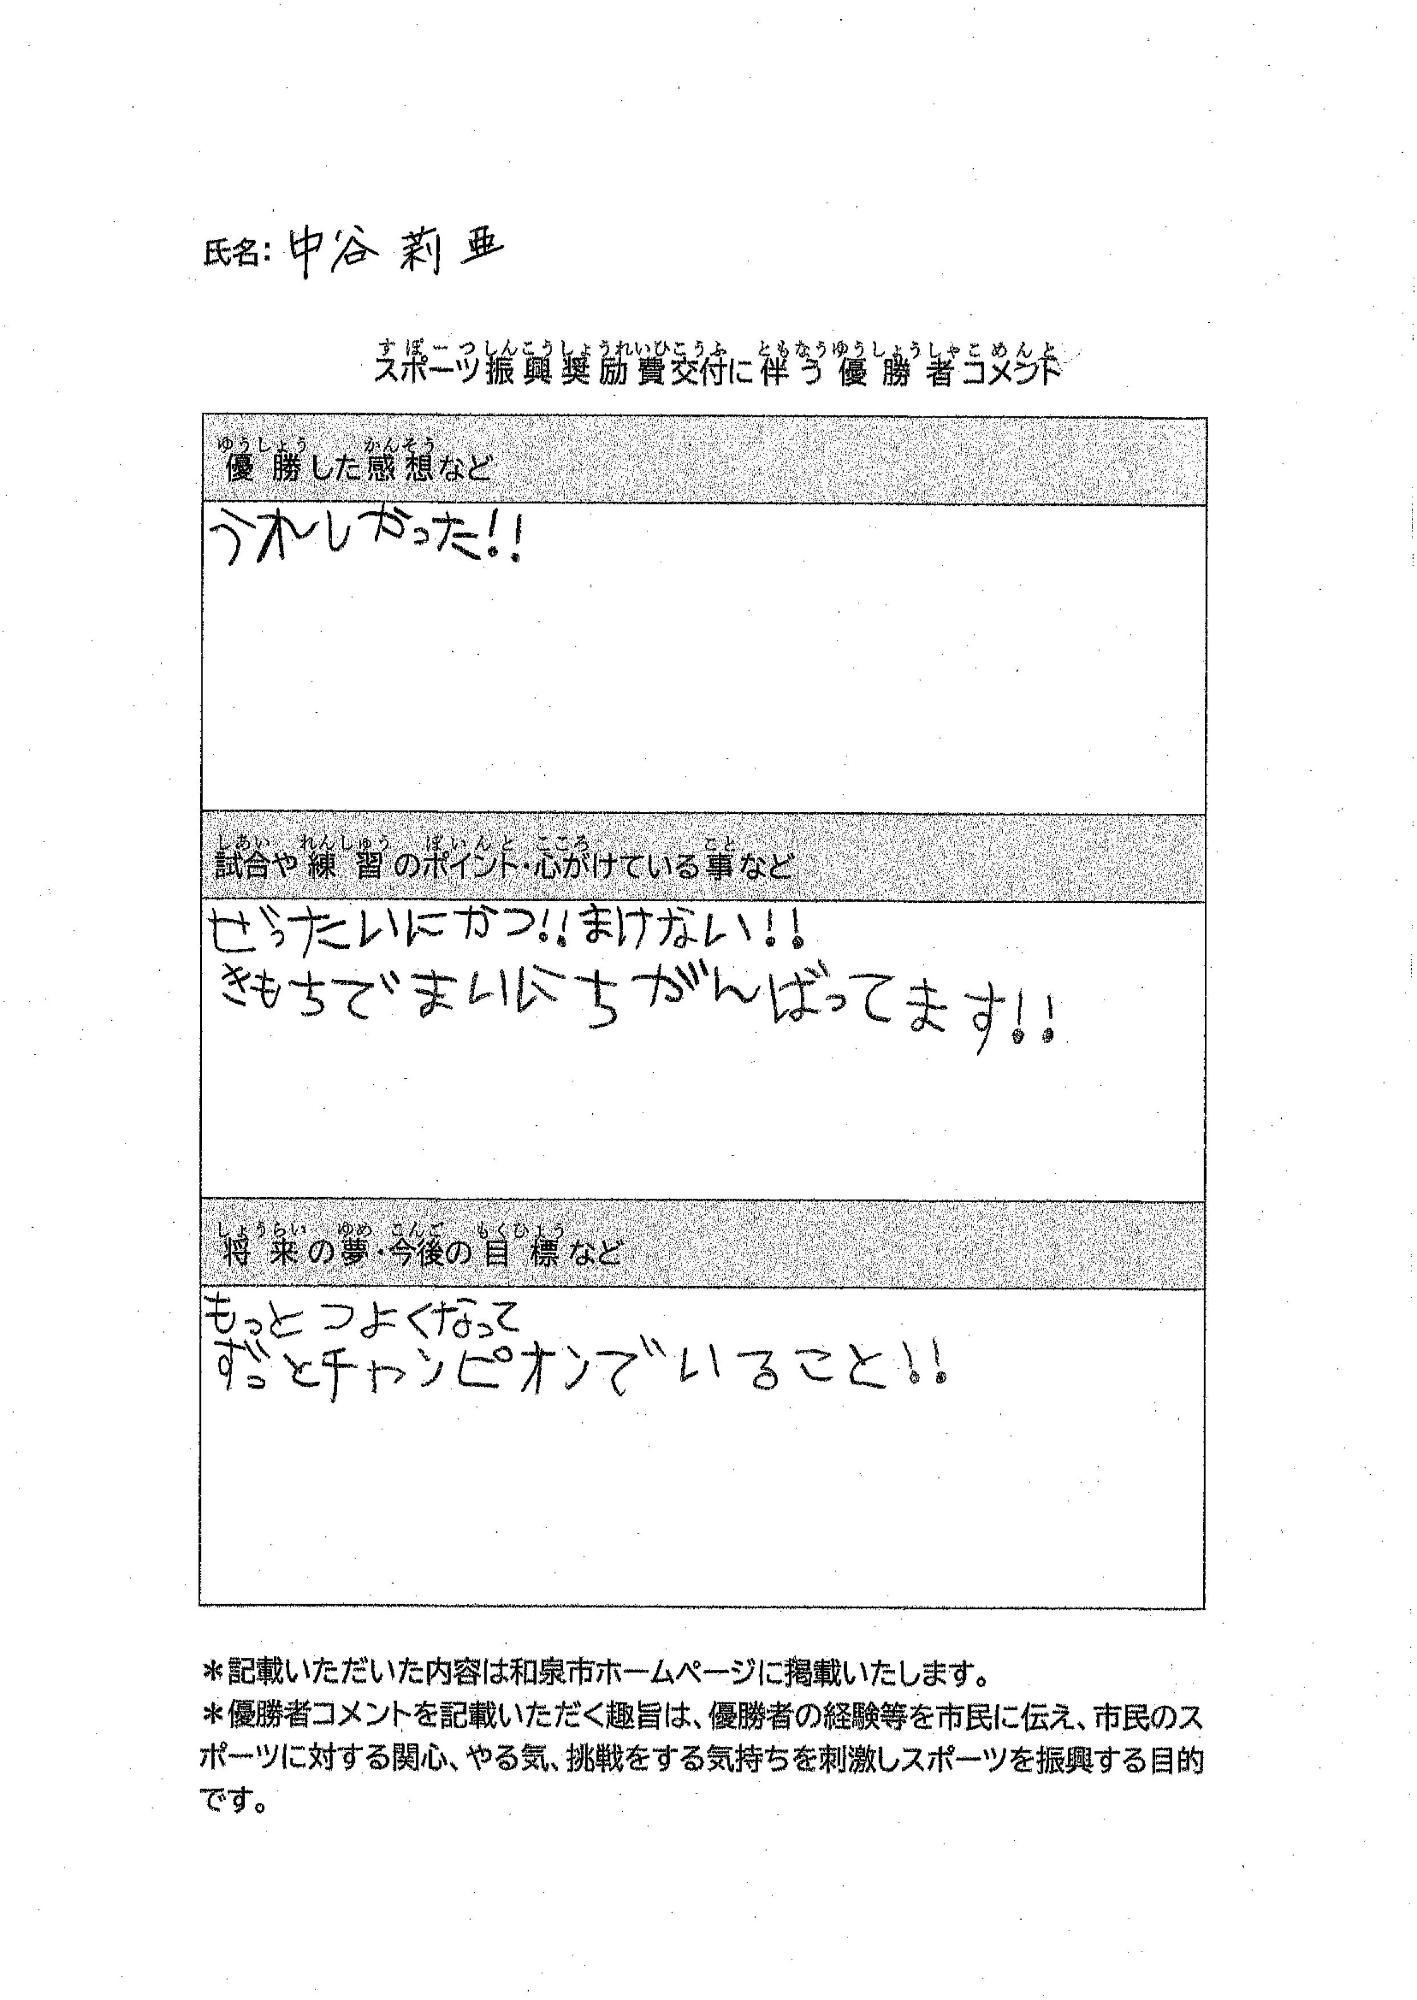 氏名: 中谷 莉亜
すぽーつしんこうしょうれいひこうふ ともなうゆうしょうしゃこめんと
スポーツ振興奨励費交付に伴う優勝者コメント
ゆうしょう かんそう
優勝した感想など
うれしかった!!
しあい れんしゅう ぽいんと こころ こと
試合や練習のポイント・心がけている事など
ぜったいにかつ!!まけない!!
きもちでまいにちがんばってます!!
しょうらい ゆめ こんご もくひょう
将来の夢・今後の目標など
もっとつよくなって
ずっとチャンピオンでいること!!
＊記載いただいた内容は和泉市ホームページに掲載いたします。
＊優勝者コメントを記載いただく趣旨は、優勝者の経験等を市民に伝え、市民のス
ポーツに対する関心、やる気、挑戦をする気持ちを刺激しスポーツを振興する目的
です。